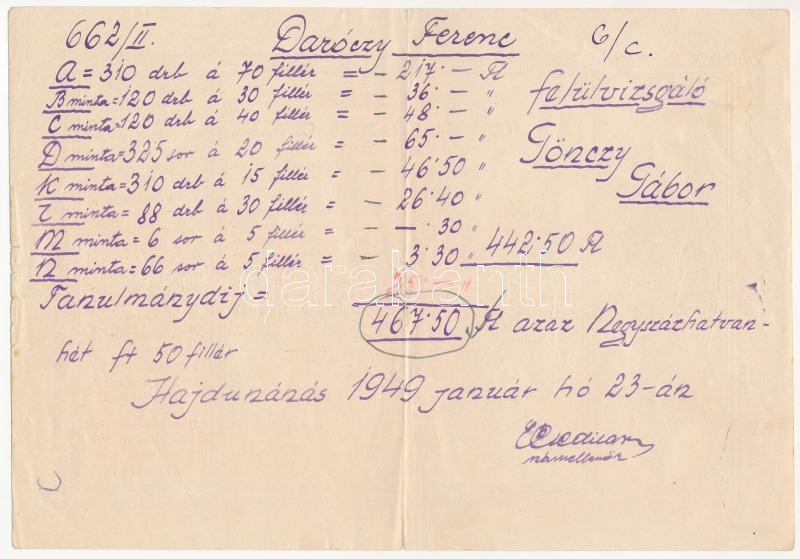 662/II. Daróczy Ferenc 6/c.
A = 310 drb á 70 fillér = - 217·- Ft
B minta = 120 drb á 30 fillér = - 36·- "
C minta = 120 drb á 40 fillér = - 48·- "
D minta = 325 sor á 20 fillér = - 65·- "
K minta = 310 drb á 15 fillér = - 46·50 "
L minta = 88 drb á 30 fillér = - 26·40 "
M minta = 6 sor á 5 fillér = - -·30 "
N minta = 66 sor á 5 fillér = - 3·30 " 442·50 Ft
felülvizsgáló
Gönczy
Gábor
Tanulmánydij = 25·- "
467·50 Ft azaz Negyszázhatvan-
hét ft 50 fillér
Hajdunánás 1949 január hó 23-án
darabanth